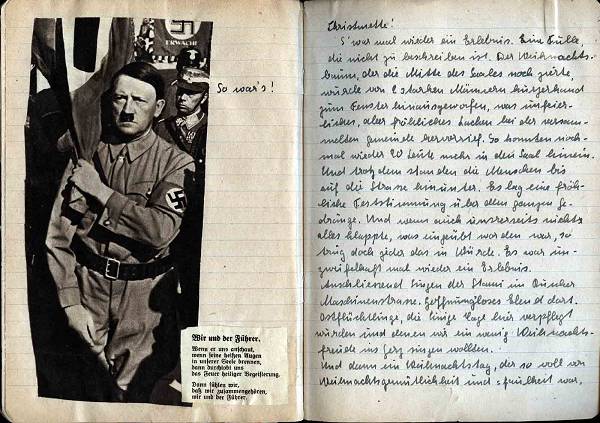 ERWACHE
So war's!
Wir und der Führer.
Wenn er uns anschaut,
wenn seine hellen Augen
in unserer Seele brennen,
dann durchloht uns
das Feuer heiliger Begeisterung.
Dann fühlen wir,
daß wir zusammengehören,
wir und der Führer.
Christmette!
S'war mal wieder ein Erlebnis. Eine Fülle,
die nicht zu beschreiben ist. Der Weihnachts-
baum, der die Mitte des Saales noch zierte,
wurde von 2 starken Männern kurzerhand
zum Fenster hinausgeworfen, was unfeier-
liches, aber fröhliches Lachen bei der versam-
melten Gemeinde hervorrief. So konnten noch-
mal wieder 20 Leute mehr in den Saal hinein.
Und trotzdem standen die Menschen bis
auf die Strasse hinunter. Es lag eine fröh-
liche Feststimmung über dem ganzen Ge-
dränge. Und wenn auch unsrerseits nicht
alles klappte, was eingeübt worden war, so
trug doch jeder das in Würde. Es war un-
zweifelhaft mal wieder ein Erlebnis.
Anschliessend Singen der Stami im
Maschinenstrasse. Hoffnungsloses Elend dort.
Ostflüchtlinge, die einige Tage hier verpflegt
würden und denen wir ein wenig Weihnachts-
freude ins Herz singen wollten.
Und dann ein Weihnachtstag, der so voll von
Weihnachtsgemütlichkeit und -faulheit war.